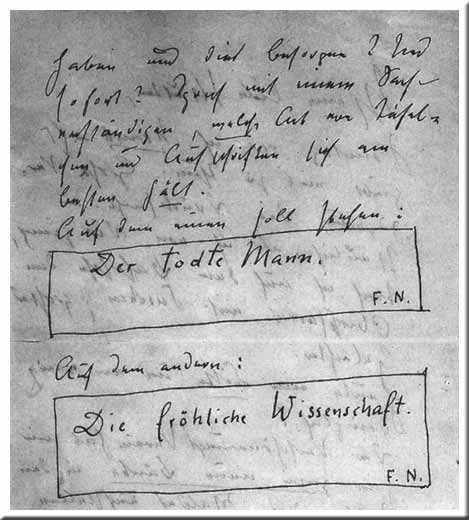 haben und dies besorgen? Und
sofort? Sprich mit einem Sach-
verständigen, welche Art von Täfel=
chen und Aufschriften sich am
besten hält.
Auf dem einen soll stehen:
Der todte Mann.
F. N.
Auf dem andern:
Die fröhliche Wissenschaft.
F. N.